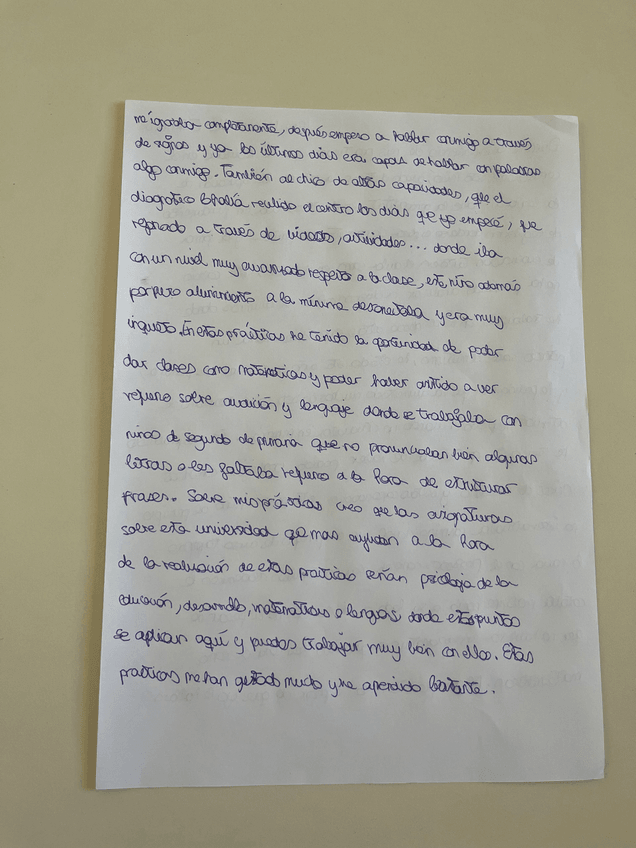 me ignoraba completamente, después empezo a hablar conmigo a través
de signos y ya los últimos dias era capaz de hablar con palabras
algo conmigo. También al chico de altas capacidades, que el
diagnotico había recibido el centro los dias que yo empecé, fue
reforzado a través de videos, actividades... donde iba
con un nivel muy avanzado respeto a la clase, este niño además
por puro aburrimiento a la mínima desconectaba y era muy
inquieto. En estas prácticas he tenido la oportunidad de poder
dar clases como matemáticas y poder haber asitido a ver
refuerzo sobre audición y lenguaje donde se trabajaba con
niños de segundo de primaria que no pronunciaban bien algunas
letras o les faltaba refuerzo a la hora de estructurar
frases. Sobre mis prácticas creo que las asignaturas
sobre esta universidad que mas ayudan a la hora
de la realización de estas practicas serían psicología de la
educación, desarrollo, matematicas o lengua, donde estos puntos
se aplican aquí y puedes trabajar muy bien con ellos. Estas
practicas me han gustado mucho y he aprendido bastante.